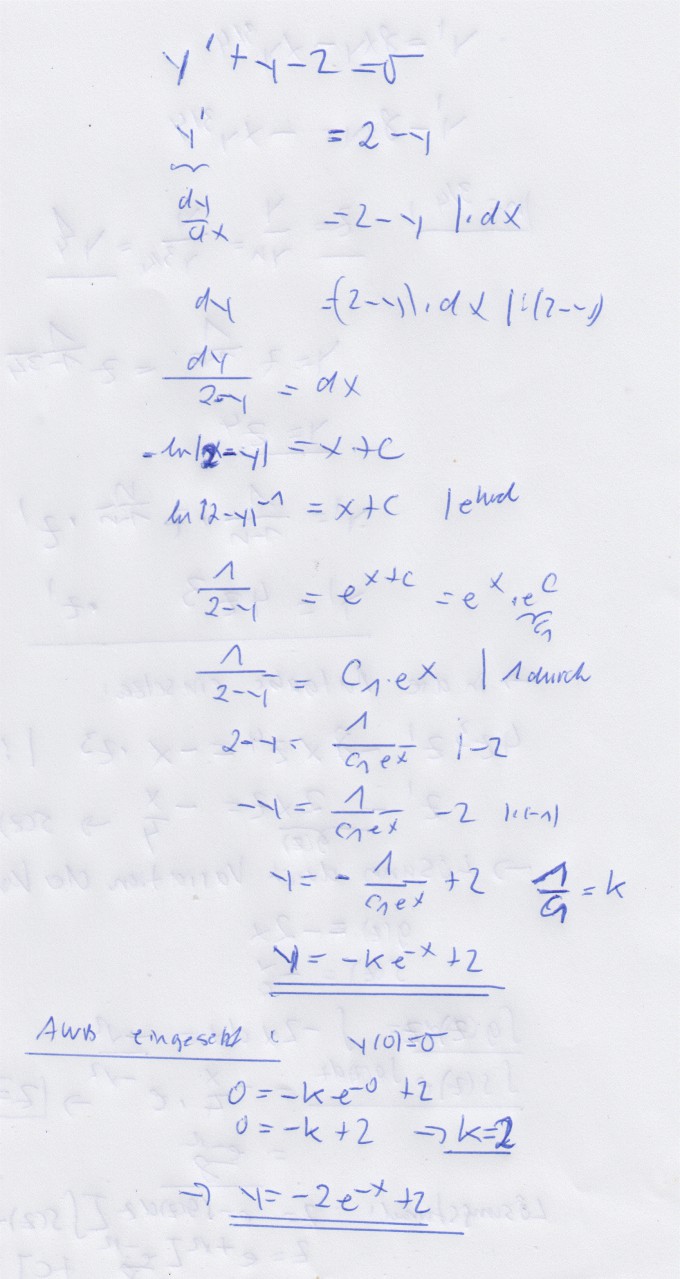 y' + y - 2 = 0
y' = 2 - y
dy/dx = 2 - y |· dx
dy = (2 - y) · dx |:(2 - y)
dy/(2-y) = dx
- ln|2 - y| = x + C
ln|2 - y|^-1 = x + C | e
1/(2-y) = e^(x+C) = e^x · e^C
C1
1/(2-y) = C1 · e^x | 1 durch
2 - y = 1/(C1 e^x) | -2
-y = 1/(C1 e^x) - 2 |·(-1)
y = - 1/(C1 e^x) + 2 1/C1 = k
y = -k e^-x + 2
AWB eingesetzt : y(0) = 0
0 = -k e^-0 + 2
0 = -k + 2 → k = 2
→ y = -2e^-x + 2